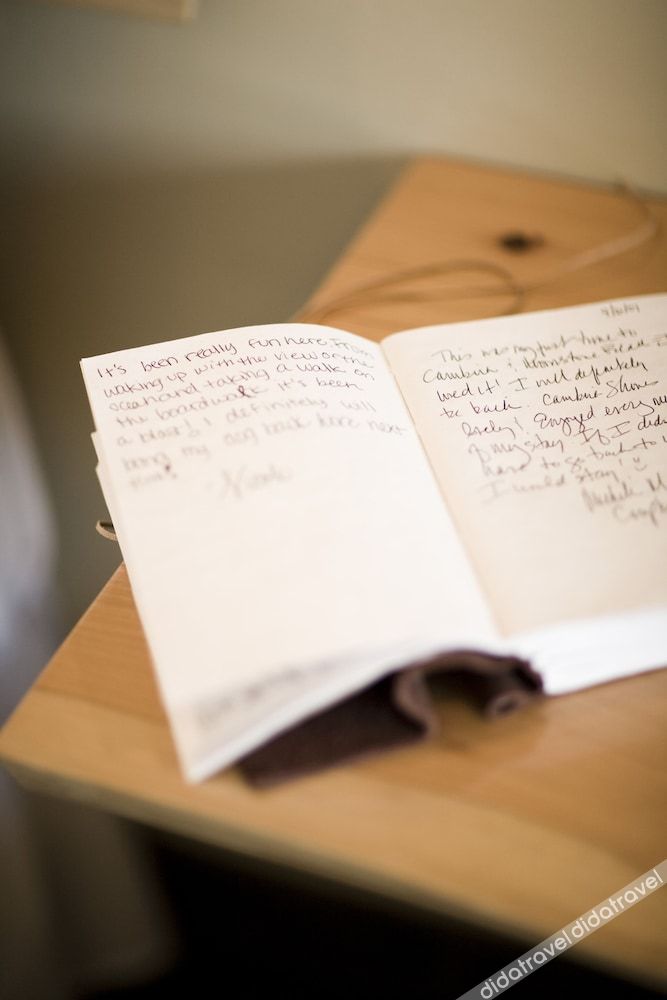 It's been really fun here. From
waking up with the view of the
ocean and taking a walk on
the boardwalk it's been
a blast! I definitely will
bring my dog back here next
time!
Nicole
This was my first time to
Cambria & Moonstone
loved it! I will definitely
be back. Cambria Shores
lovely! Enjoyed every
of my stay. If I didn't
have to go back to
I would stay!
Michele M
didatravel didatravel